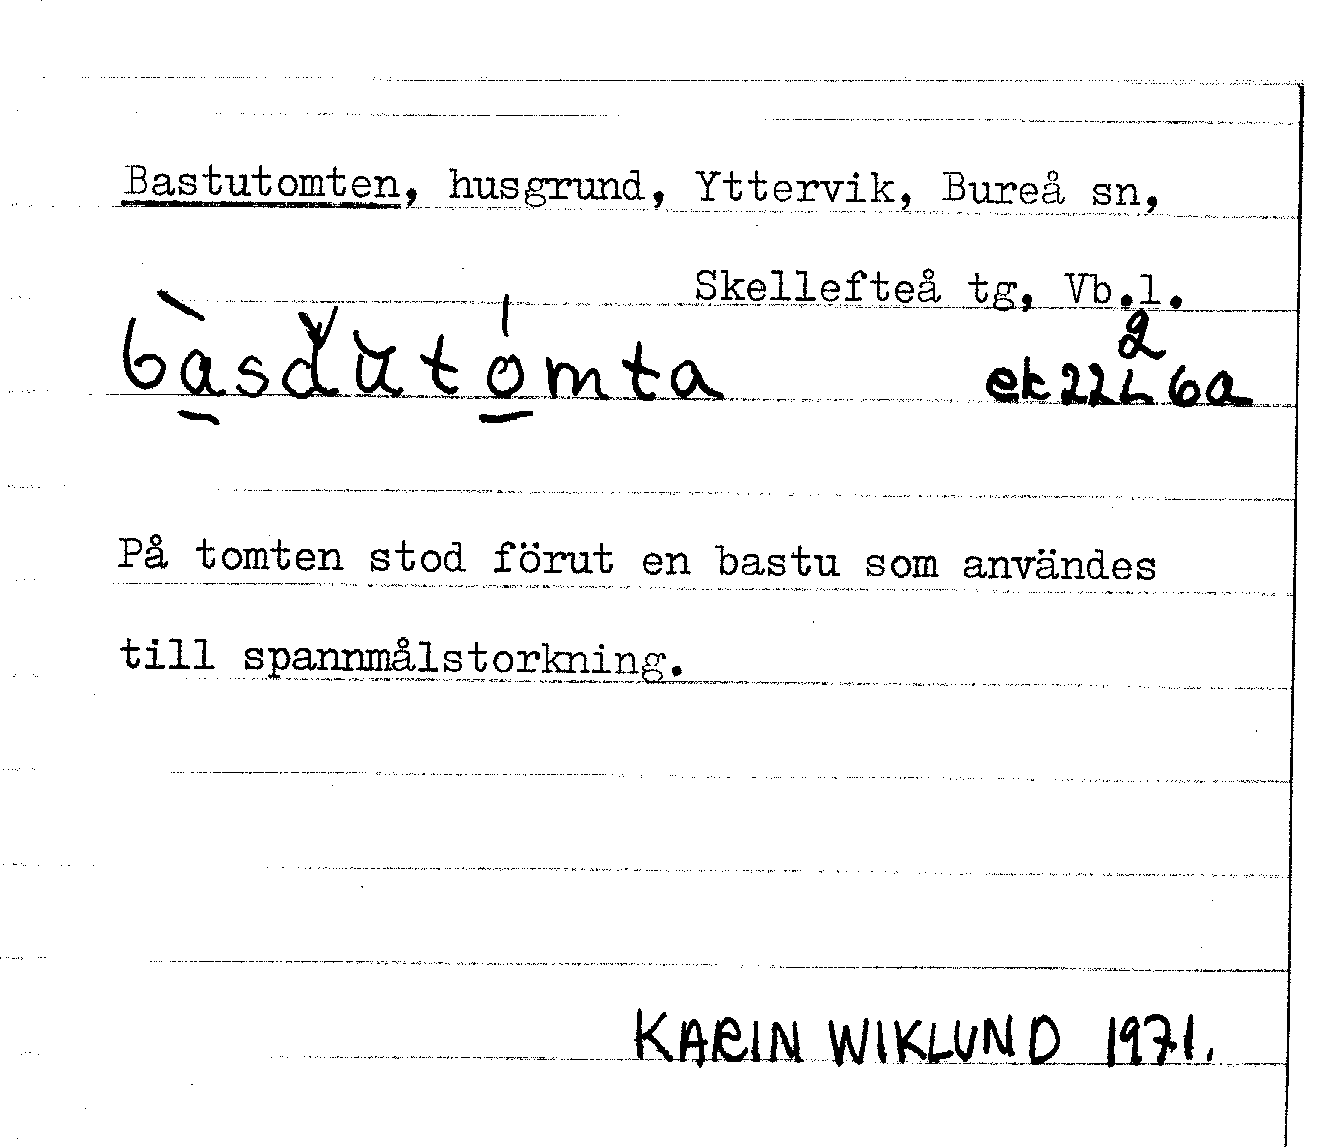 Bastutomten, husgrund, Yttervik, Bureå sn,
Skellefteå tg, Vb.l.
bàsdŭtómta
ek22L 2 6a
På tomten stod förut en bastu som användes
till spannmålstorkning.
KARIN WIKLUND 1971.